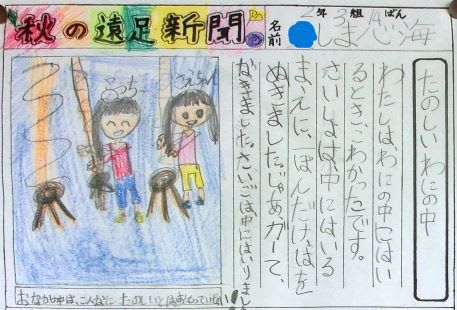 秋の遠足新聞
2年3組14ばん
名前
しま 心海
たのしいわにの中
わたしは、わにの中にはい
るときこわかったです。
さいしょは、中にはいる
まえに、1ぽんだけ、はを
ぬきました。じゃあ、ガーて、
なきました。さいごは、中にはいりました
ぶっちー
さえちゃん
おなかの中は、こんなに たのしいとは